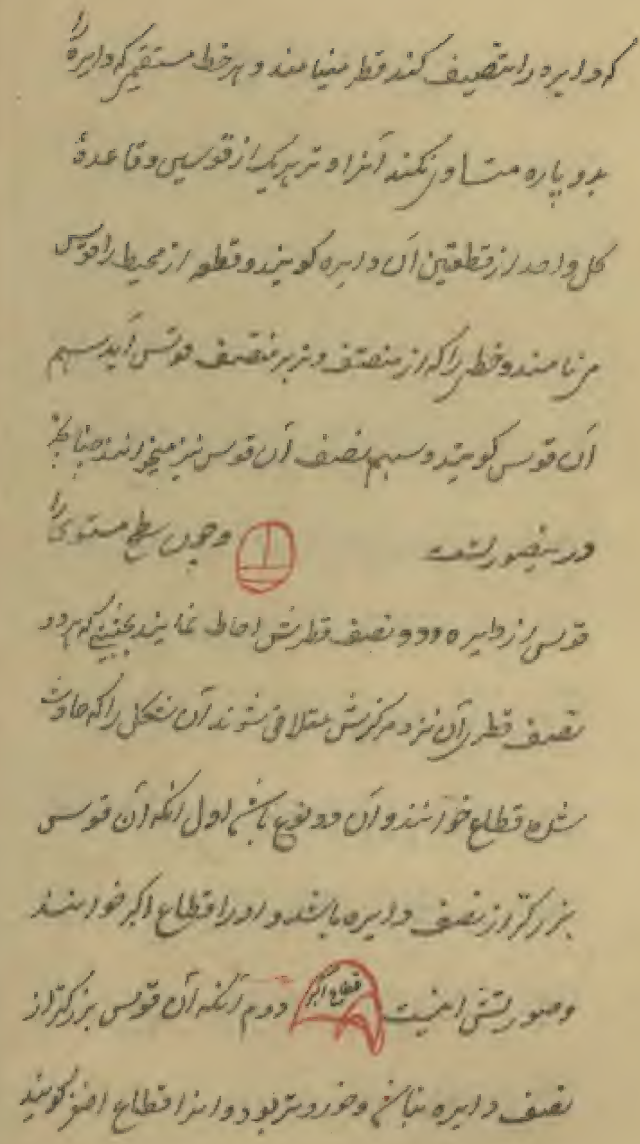 که دایره را تنصیف کند قطر مینامند و هر خط مستقیمی که دایره را
بدو پاره متساوی نکند آنرا وتر هریک از قوسین و قاعدهٔ
کل واحد از قطعتین آن دایره کویند و قطعه از محیط را قوس
می نامند و خطی را که از منتصف وتر بر منتصف قوس آید سهم
آن قوس کویند و سهم نصف آن قوس نیز میخوانند چنانچه
درینصورتست و چون سطح مستوی را
قوسی از دایره و دو نصف قطرش احاطه نمایند بحیثیتی که هر دو
نصف قطر آن نزد مرکزش متلاقی شوند آن شکل را که حادث
شده قطاع خوانند و آن دو نوع باشد اول آنکه آن قوس
بزرکتر از نصف دایره باشد و او را قطاع اکبر خوانند
و صورتش اینست قطاع اکبر دوم آنکه آن قوس بزرکتر از
نصف دایره نباشد و خوردتر بود و آنرا قطاع اصغر کویند